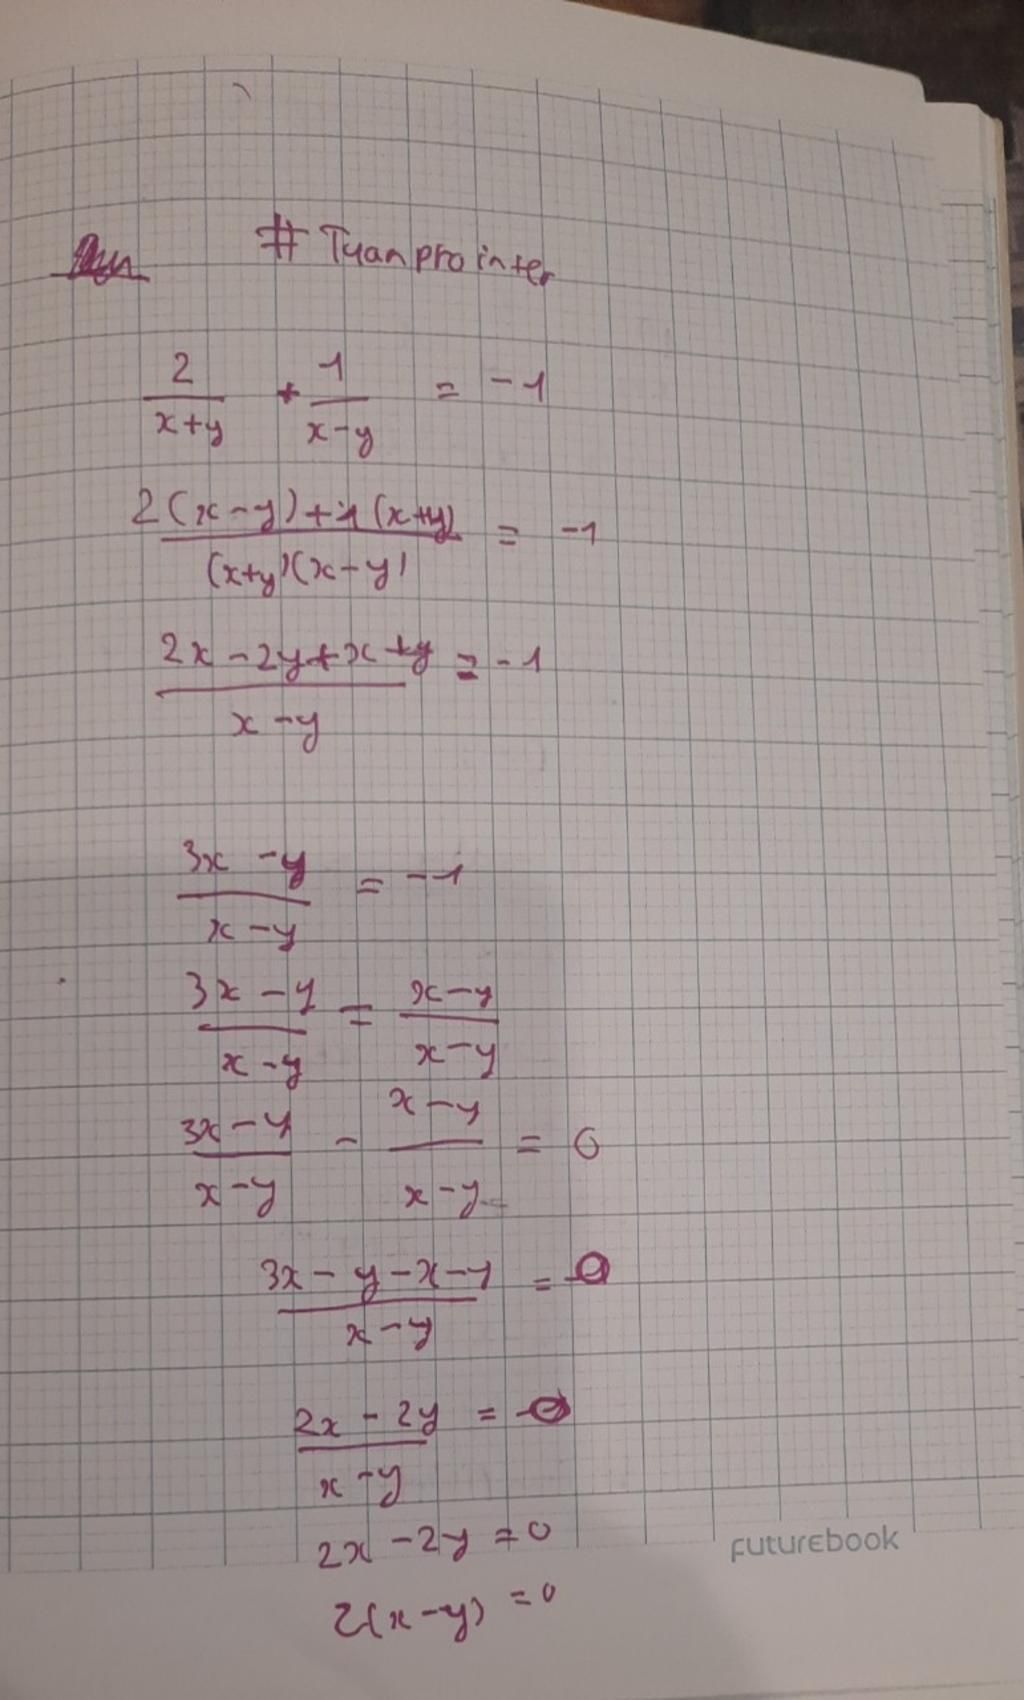 # Tyanprointer
2/(x+y) + 1/(x-y) = -1
(2(x-y)+1(x+y))/((x+y)(x-y)) = -1
(2x-2y+x+y)/(x-y) = -1
(3x-y)/(x-y) = -1
(3x-y)/(x-y) = (x-y)/(x-y)
(3x-y)/(x-y) - (x-y)/(x-y) = 0
(3x-y-x-y)/(x-y) = 0
(2x-2y)/(x-y) = 0
2x-2y=0
2(x-y)=0
FUTUREBOOK